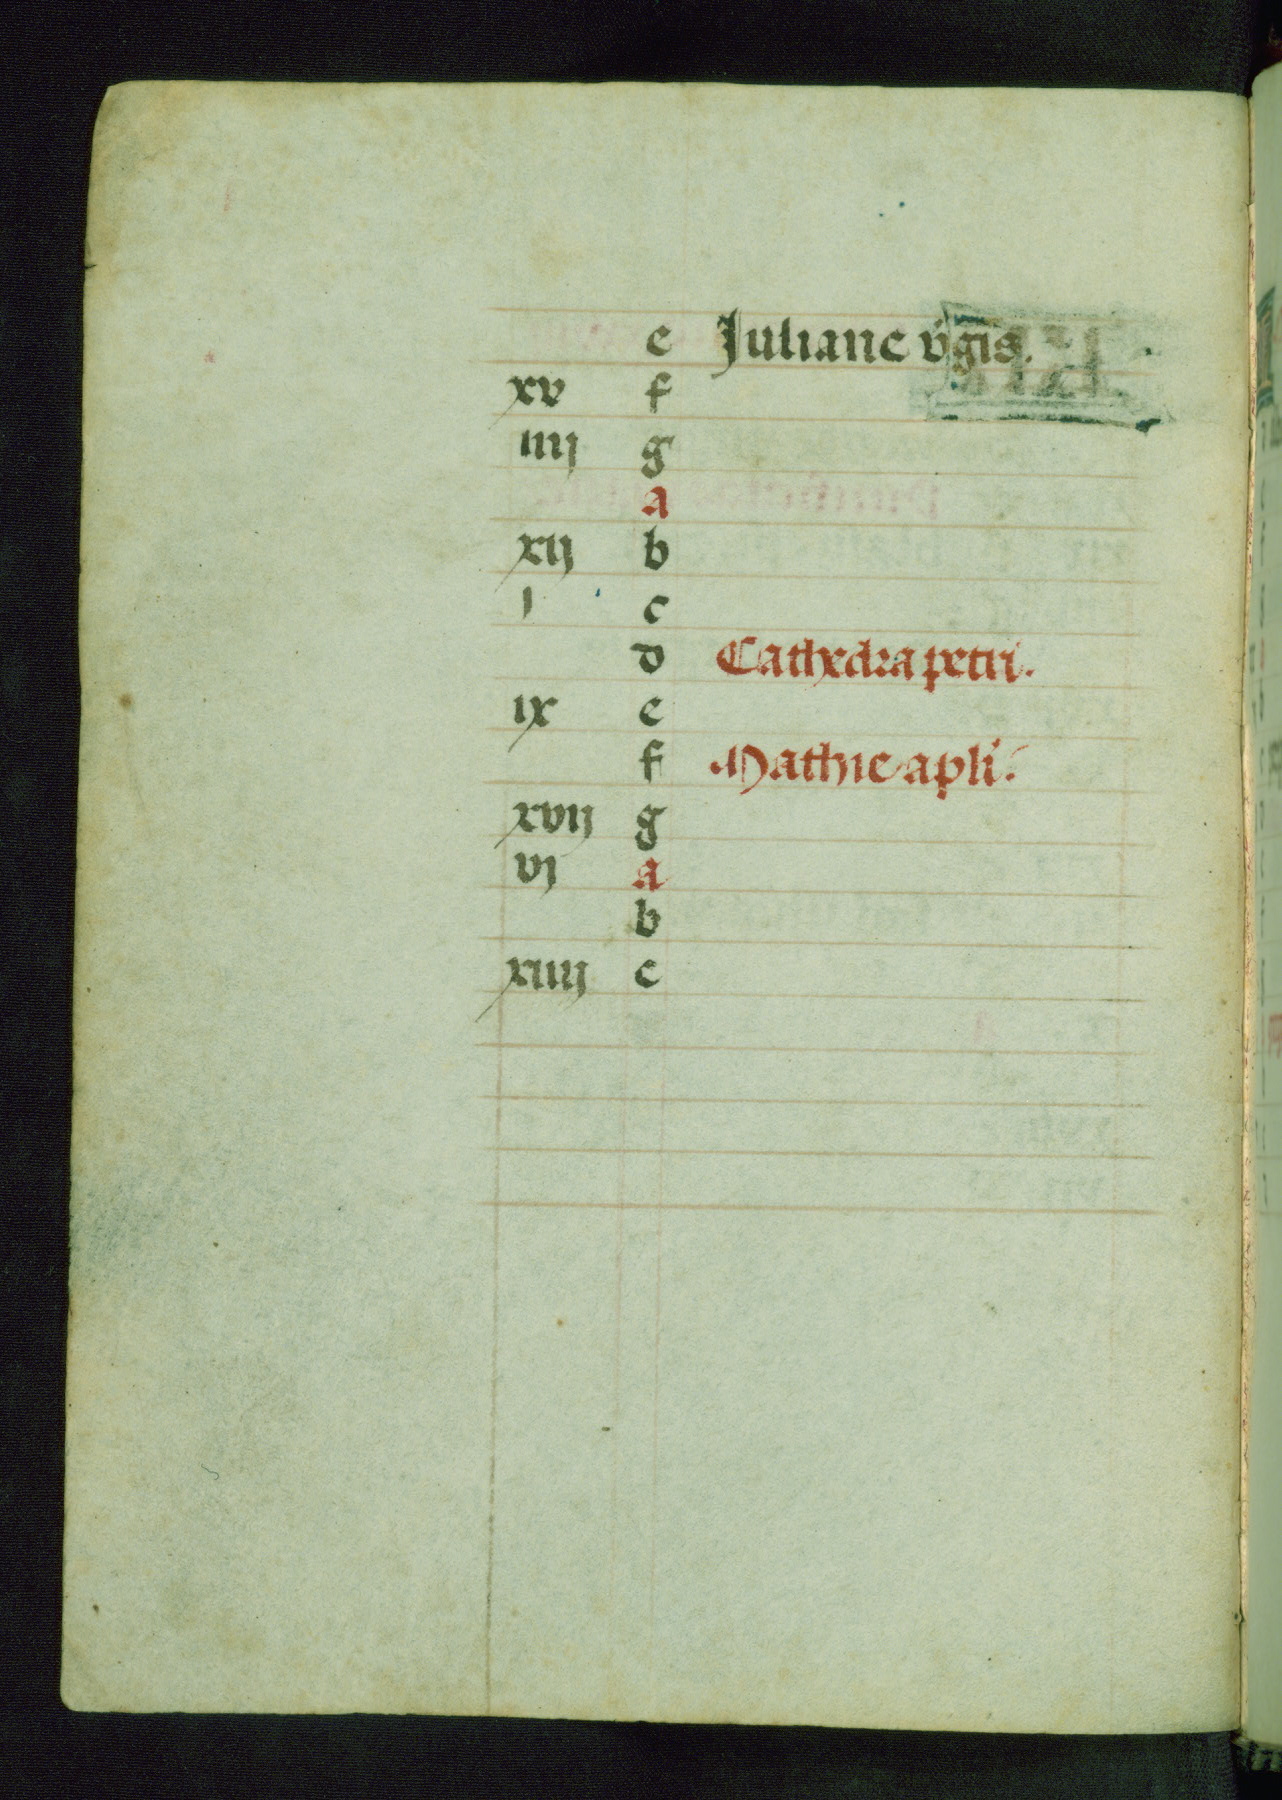 e Juliane v̄gis.
xv f
iiij g
a
xij b
i c
d Cathedra petri.
ix e
f Mathie apl'i.
xvij g
vj a
b
xiiij c